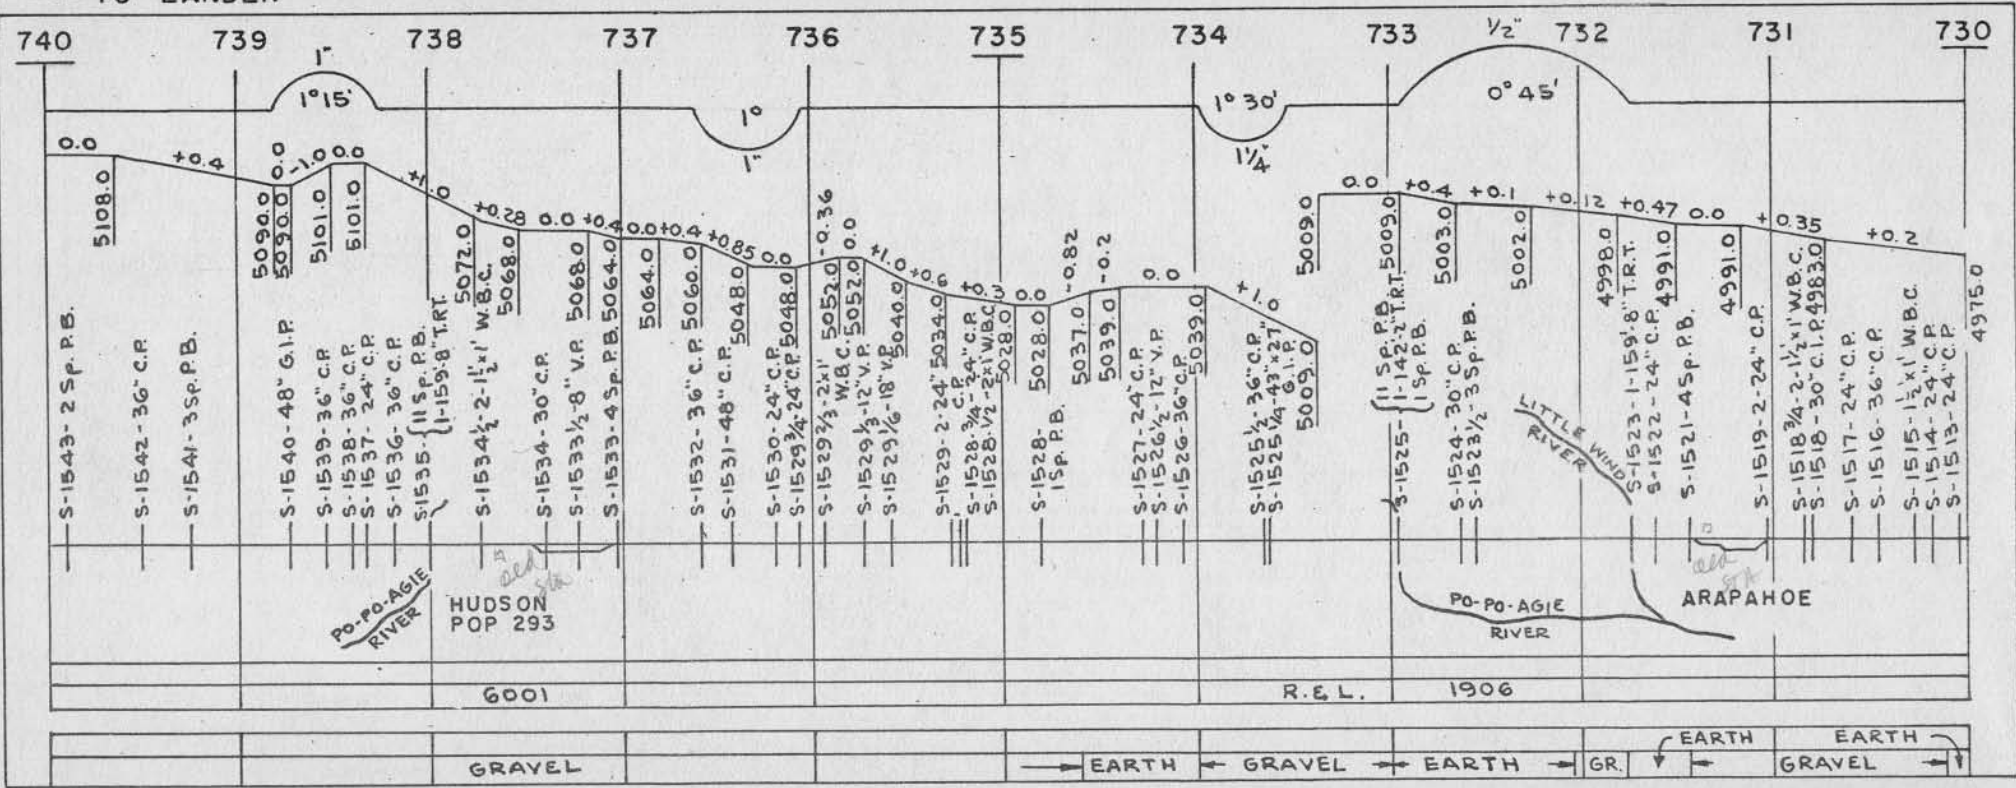 TO LANDER
740 739 738 737 736 735 734 733 732 731 730
1" 1" 1¼" ½"
1°15' 1° 1°30' 0°45'
0.0 +0.4 0.0 -1.0 0.0 +1.0 +0.28 0.0 +0.4 0.0 +0.4 +0.85 0.0 -0.36 0.0 +1.0 +0.6 +0.3 0.0 -0.82 -0.2 0.0 +1.0 0.0 +0.4 +0.1 +0.12 +0.47 0.0 +0.35 +0.2
5108.0 5090.0 5090.0 5101.0 5101.0 5072.0 5068.0 5068.0 5064.0 5064.0 5060.0 5048.0 5048.0 5052.0 5052.0 5040.0 5034.0 5028.0 5028.0 5037.0 5039.0 5039.0 5009.0 5009.0 5009.0 5003.0 5002.0 4998.0 4991.0 4991.0 4983.0 4975.0
S-1543-2 Sp. P.B.
S-1542-36" C.P.
S-1541-3 Sp. P.B.
S-1540-48" G.I.P.
S-1539-36" C.P.
S-1538-36" C.P.
S-1537-24" C.P.
S-1536-36" C.P.
S-1535-{11 Sp. P.B.
{1-159'-8" T.R.T.
S-1534½-2-1½'x1' W.B.C.
S-1534-30" C.P.
S-1533½-8" V.P.
S-1533-4 Sp. P.B.
S-1532-36" C.P.
S-1531-48" C.P.
S-1530-24" C.P.
S-1529¾-24" C.P.
S-1529⅔-2'x1'
W.B.C.
S-1529⅓-12" V.P.
S-1529⅙-18" V.P.
S-1529-2-24"
C.P.
S-1528¾-24" C.P.
S-1528½-2'x1' W.B.C.
S-1528-
1 Sp. P.B.
S-1527-24" C.P.
S-1526½-12" V.P.
S-1526-36" C.P.
S-1525½-36" C.P.
S-1525¼-43"x27"
G.I.P.
S-1525-
{11 Sp. P.B.
1-142'-2" T.R.T.
1 Sp. P.B.
S-1524-30" C.P.
S-1523½-3 Sp. P.B.
S-1523-1-159'-8" T.R.T.
S-1522-24" C.P.
S-1521-4 Sp. P.B.
S-1519-2-24" C.P.
S-1518¾-2-1½'x1' W.B.C.
S-1518-30" C.I.P.
S-1517-24" C.P.
S-1516-36" C.P.
S-1515-1½'x1' W.B.C.
S-1514-24" C.P.
S-1513-24" C.P.
LITTLE WIND
RIVER
old
Sta
old
STA
PO-PO-AGIE
RIVER
HUDSON
POP 293
PO-PO-AGIE
RIVER
ARAPAHOE
6001 R.&L. 1906
EARTH EARTH
GRAVEL EARTH GRAVEL EARTH GR. GRAVEL